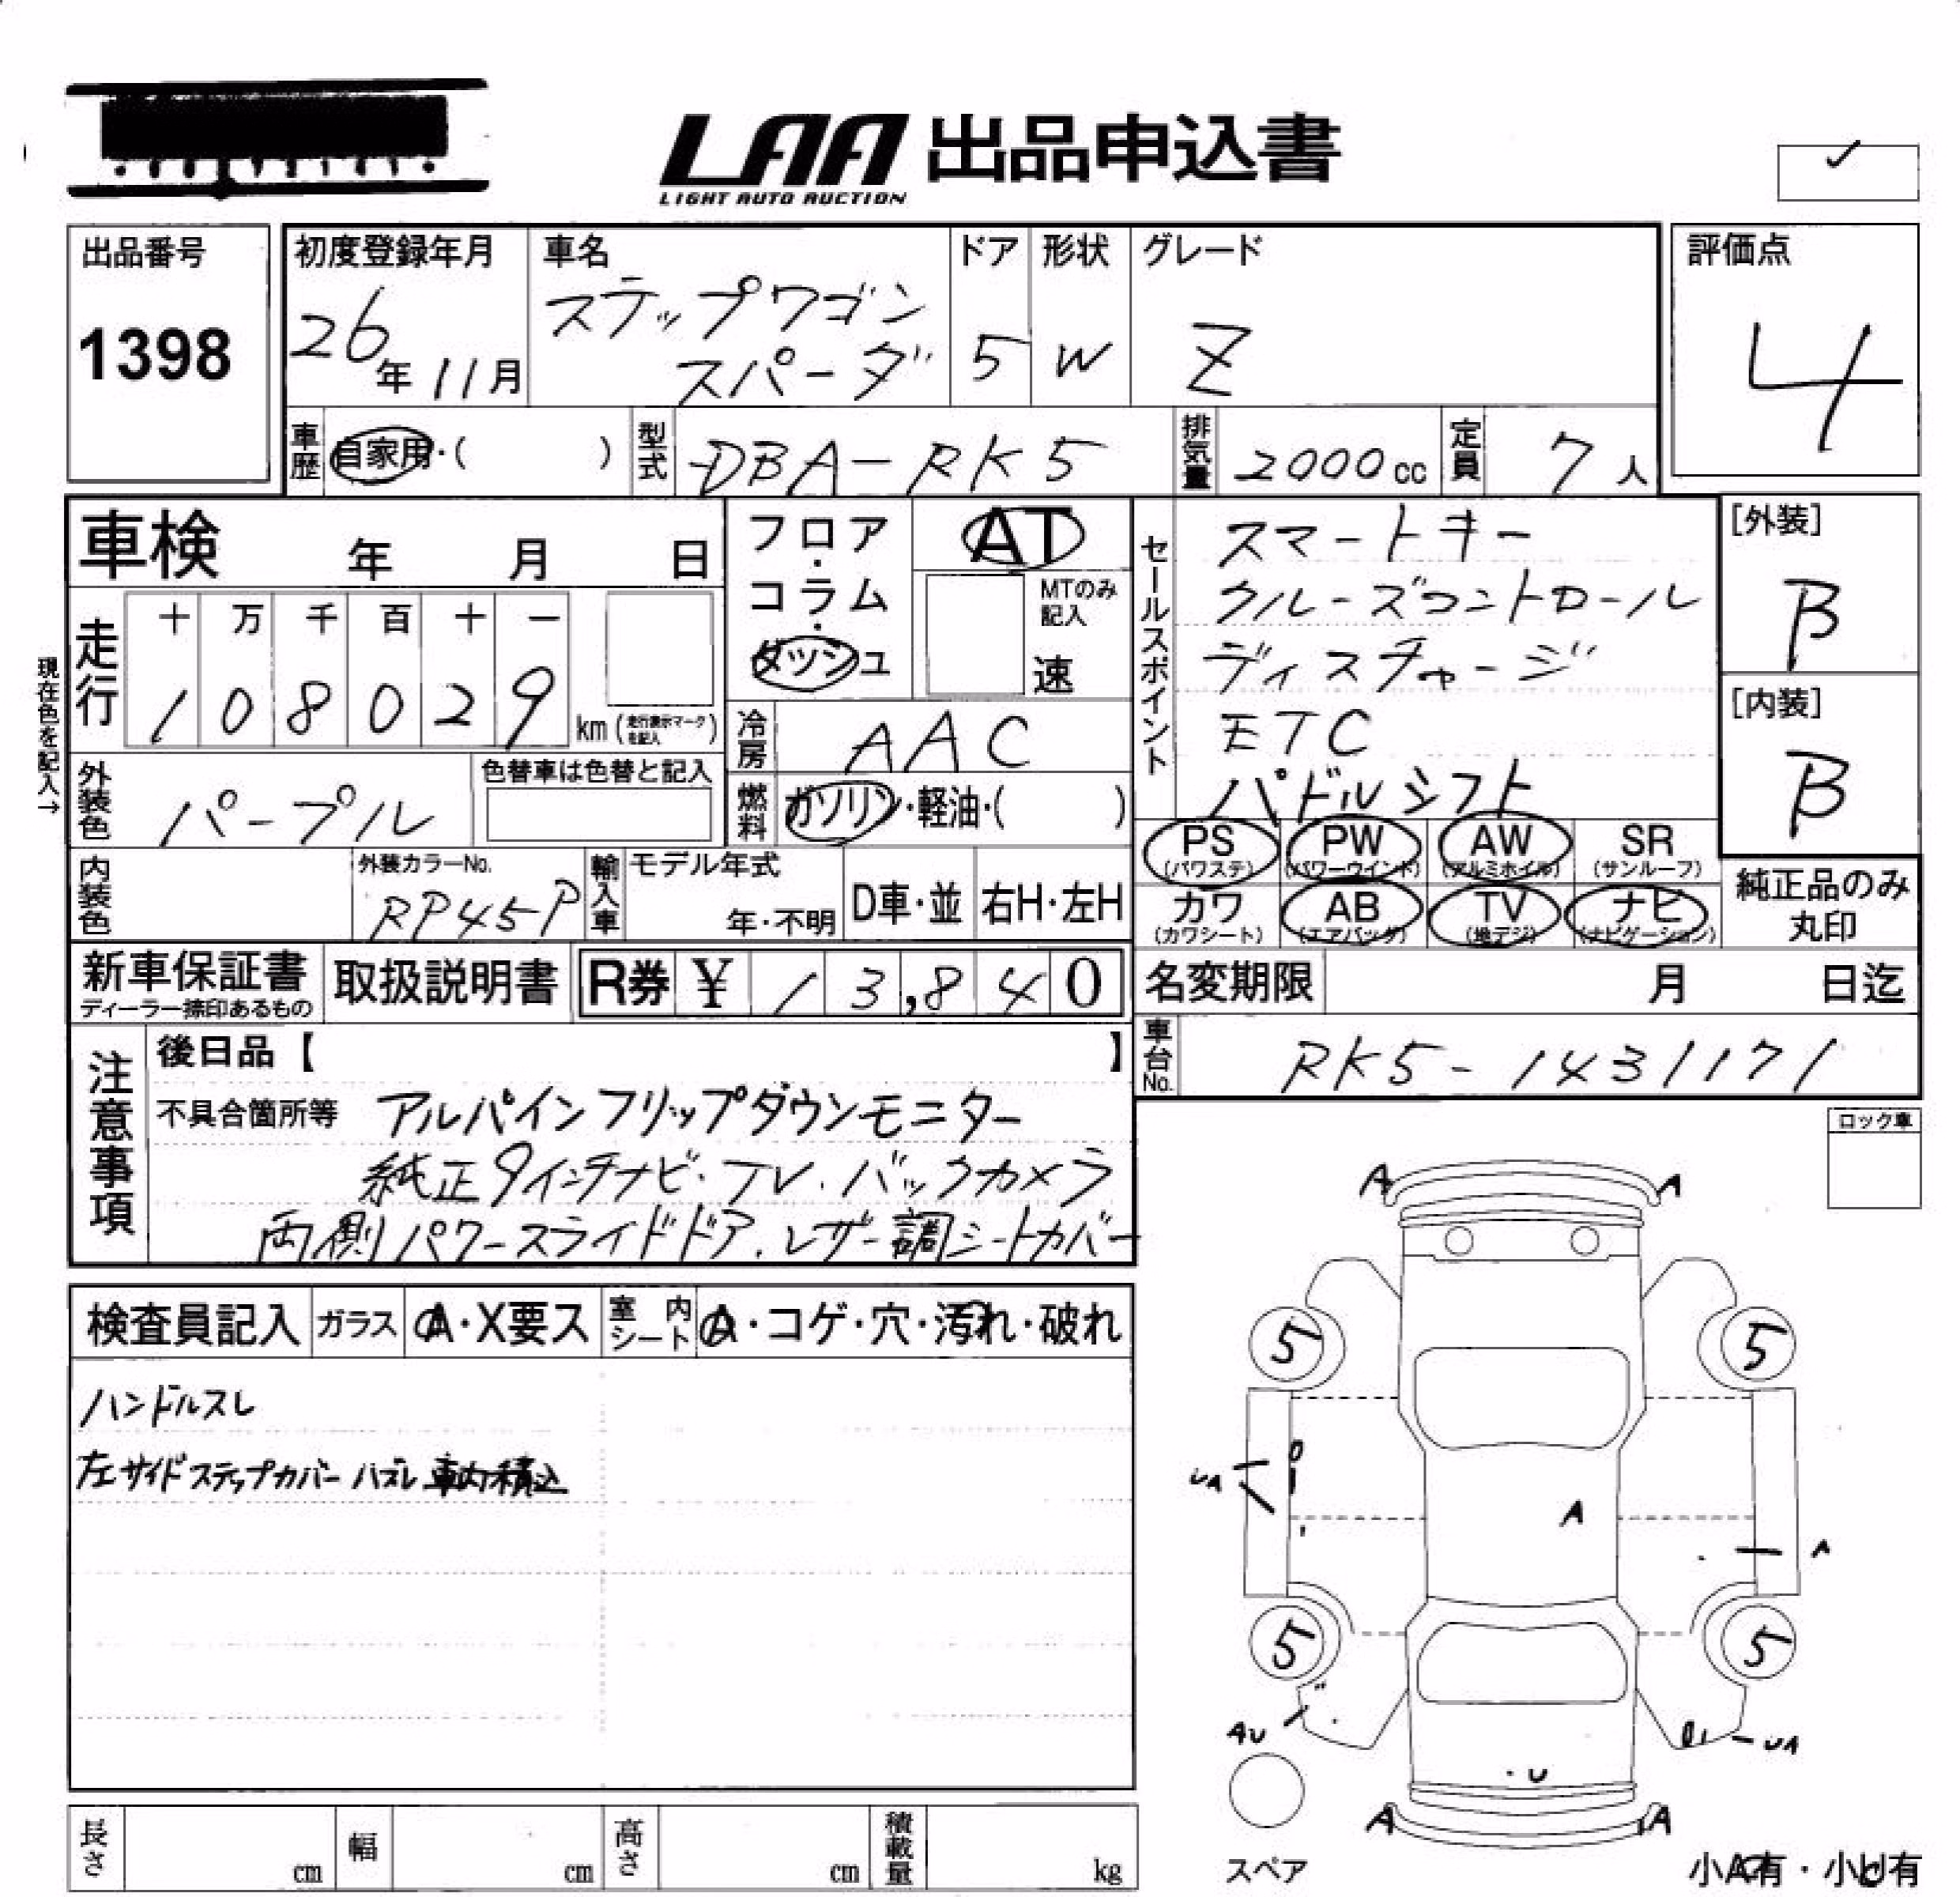 LAA 出品申込書
LIGHT AUTO AUCTION
出品番号
1398
初度登録年月
26年11月
車名
ステップワゴン
スパーダ
ドア
5
形状
W
グレード
Z
評価点
4
車歴 自家用・( )
型式 DBA-RK5
排気量 2000cc
定員 7人
車検 年 月 日
フロア・コラム・ダッシュ
AT
MTのみ記入
速
セールスポイント
スマートキー
クルーズコントロール
ディスチャージ
ETC
パドルシフト
[外装]
B
[内装]
B
現在色を記入→
走行
十 万 千 百 十 一
1 0 8 0 2 9 km (走行表示マークを記入)
冷房 AAC
外装色 パープル
色替車は色替と記入
燃料 ガソリン・軽油・( )
PS (パワステ) PW (パワーウインド) AW (アルミホイル) SR (サンルーフ)
カワ (カワシート) AB (エアバッグ) TV (地デジ) ナビ (ナビゲーション)
純正品のみ丸印
内装色
外装カラーNo.
RP45P
輸入車 モデル年式
年・不明
D車・並 右H・左H
新車保証書
ディーラー捺印あるもの
取扱説明書
R券 ¥ 13,840
名変期限 月 日迄
車台No. RK5-1431171
注意事項
後日品【 】
不具合箇所等 アルパインフリップダウンモニター
純正9インチナビ・TV・バックカメラ
両側パワースライドドア、レザー調シートカバー
ロック車
検査員記入 ガラス A・X要ス 室内シート A・コゲ・穴・汚れ・破れ
ハンドルスレ
左サイドステップカバーハズレ車内積込
A A
5 5
UA
A
A
5 5
AU
UA
U
A A
スペア
小A有・小U有
長さ cm 幅 cm 高さ cm 積載量 kg